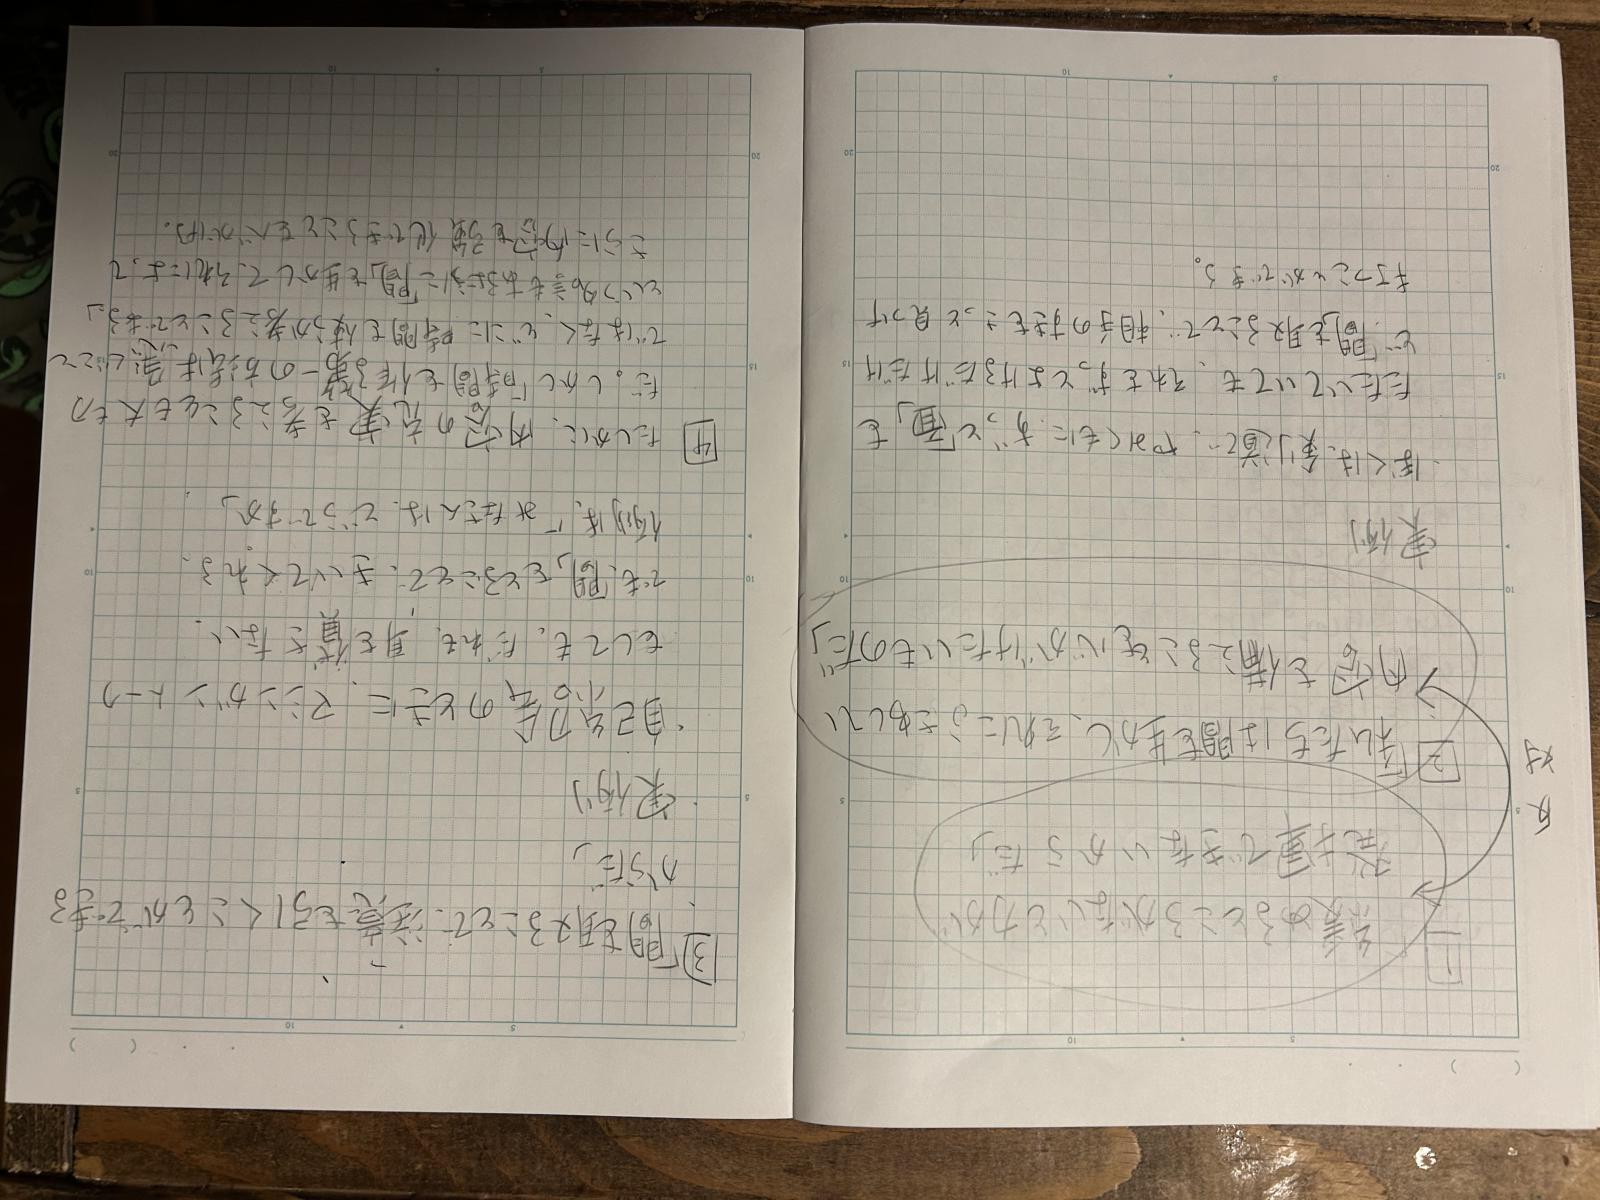 1 緩めるところがないと力が
発揮できないからだ」
反対
2 「私たちは間を生かし、それにふさわしい
内容を備えることを心がけたいものだ」
実例
・ぼくは、剣道で、やみくもに、ずっと「面」を
たたいていても、それをずっとよけるだけだけ
ど「間」を取ることで、相手のすきをさっと見つけ
打つことができる。
3 「間を取ることで、注意を引くことができる
からだ」
・実例
・自己紹介のときに、マシンガントーク
をしても、だれも、耳を貸さない。
でも、「間」をとることで、きいてくれる。
例は、「みなさんは、どうですか」
4 たしかに、内容の充実を考えることも大切
だ。しかし「時間を作る第一の方法は、急ぐことで
ではなく、どこに時間を使うか考えることである」
という名言もあるように「間」を生かして、それによって
さらに内容を強化できることを